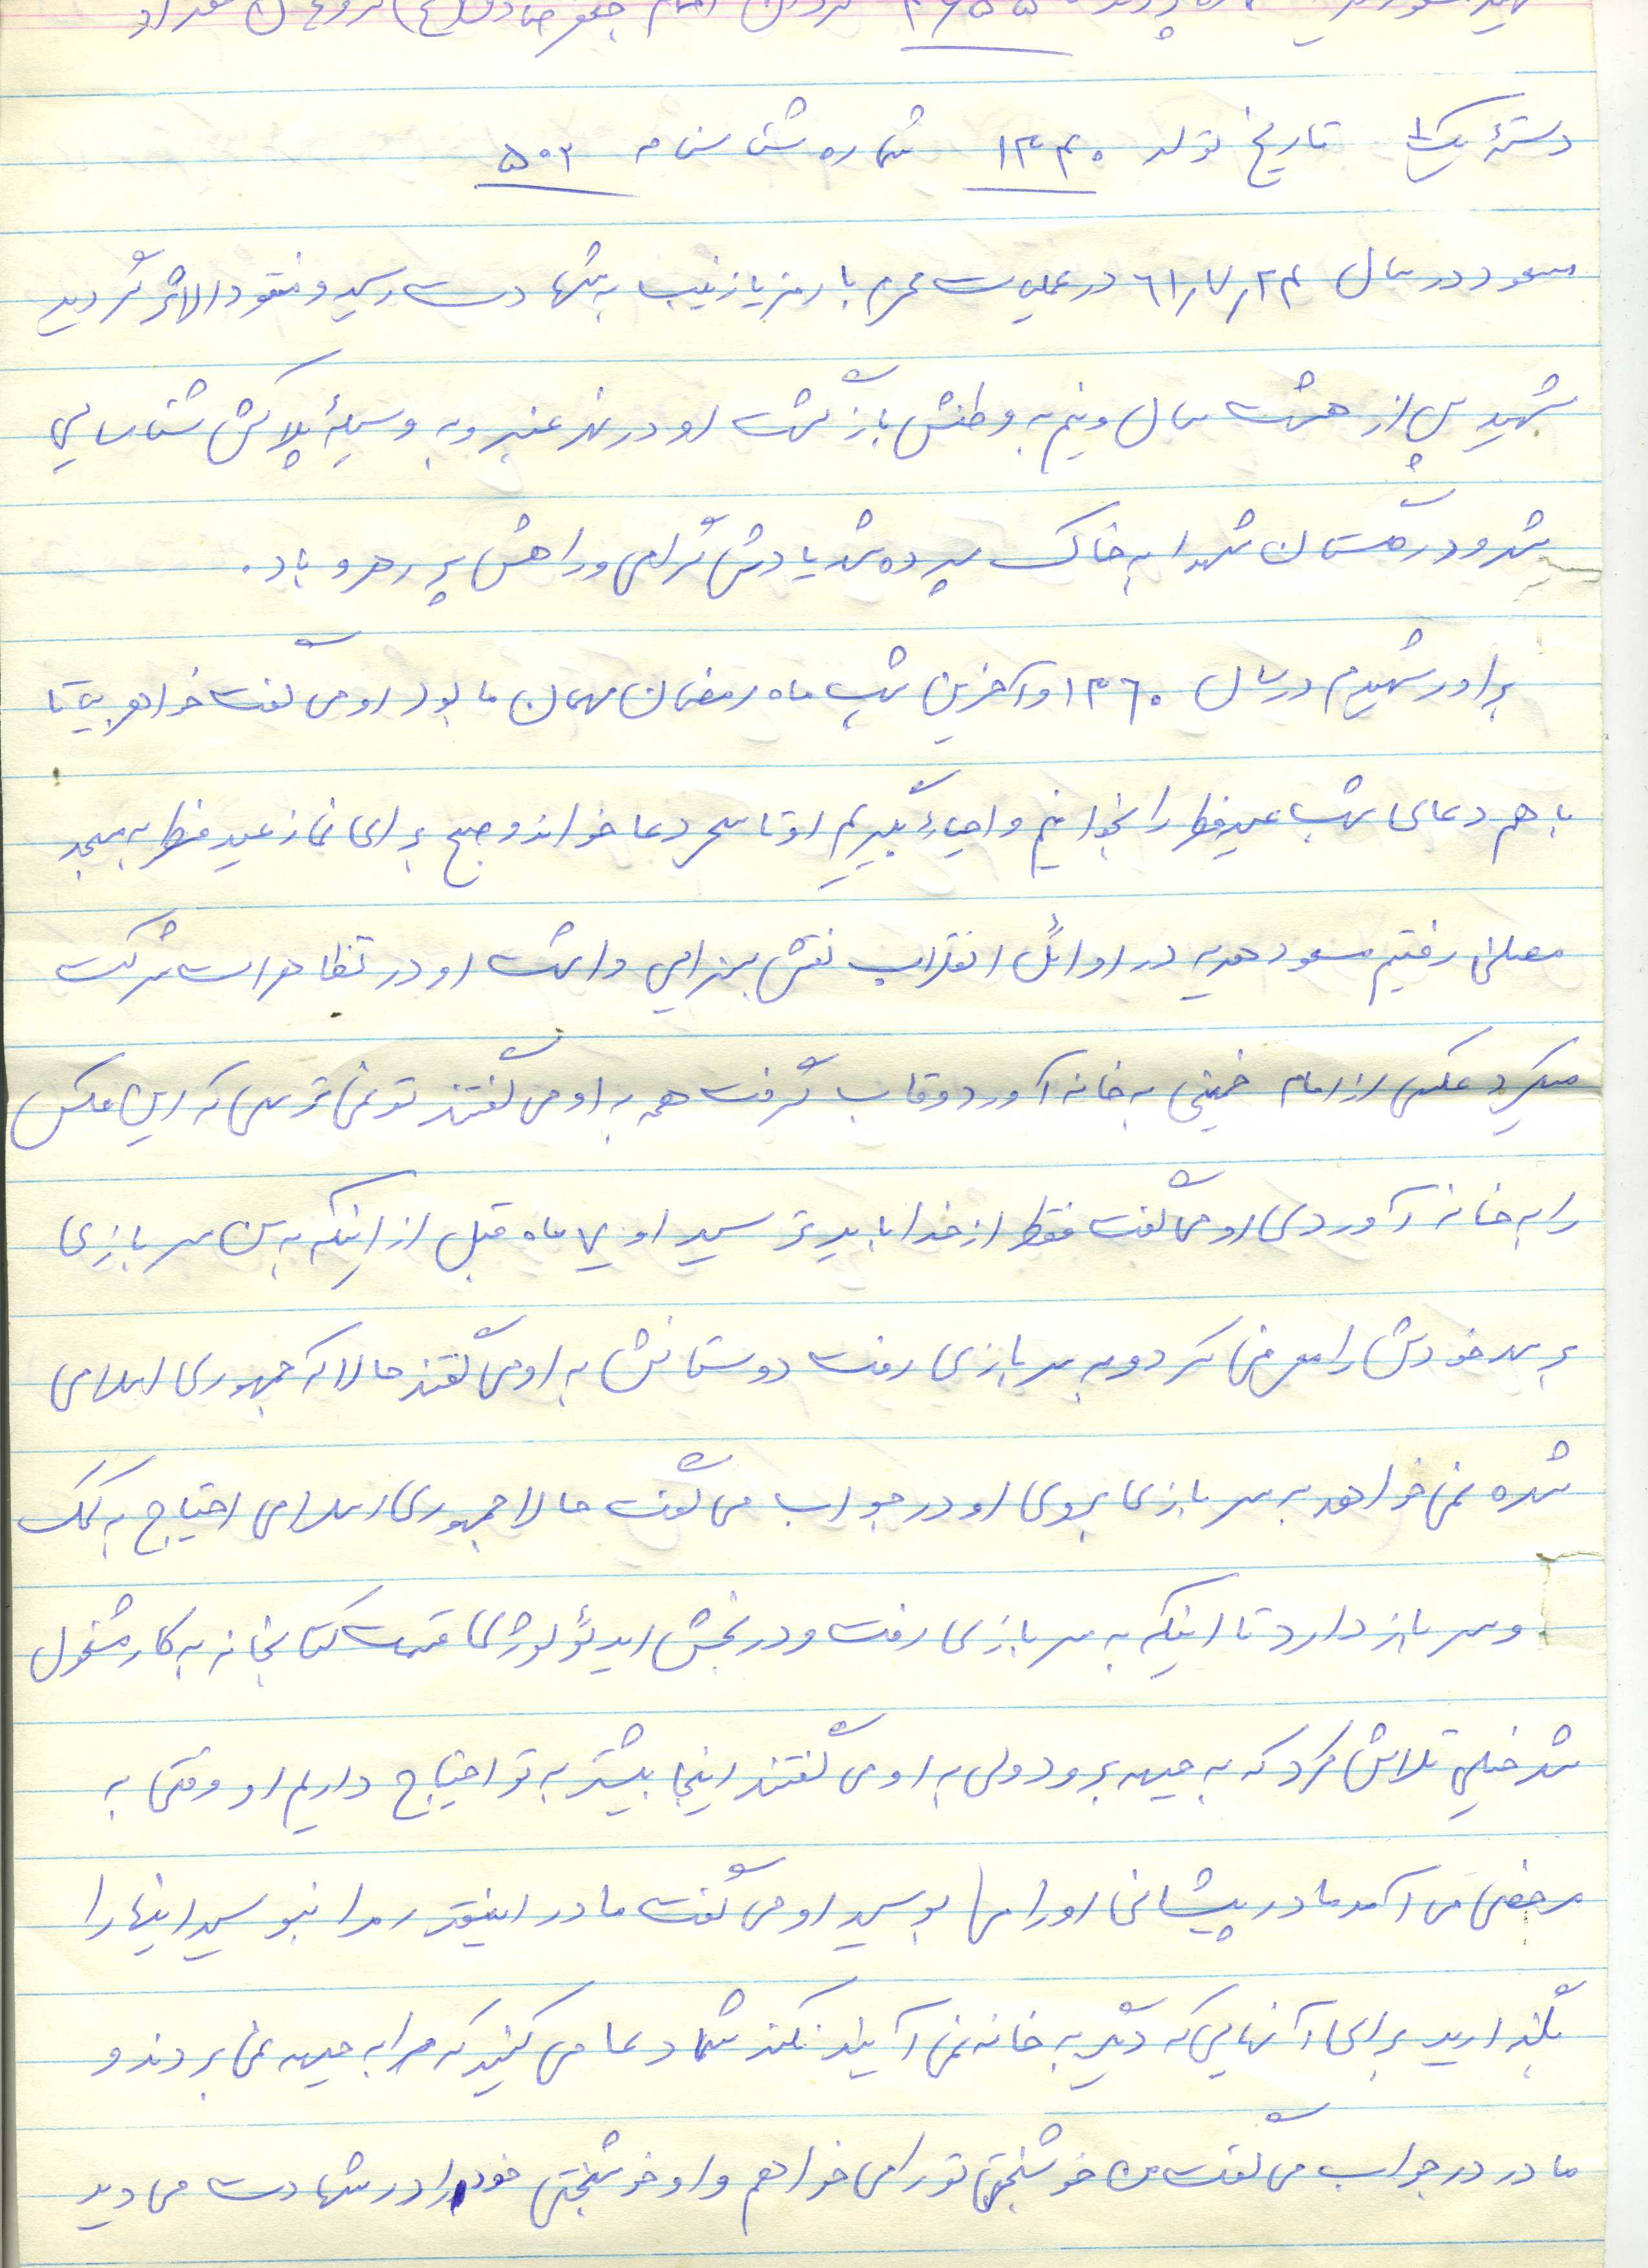 گردان امام جعفر صادق (ع)
دستهٔ یک تاریخ تولد ۱۳۴۰ شماره شناسنامه ۵۰۲
مسعود در سال ۶۱/۷/۲۴ در عملیات محرم با رمز یا زینب به شهادت رسید و مفقودالاثر گردید
شهید پس از هشت سال و نیم به وطنش بازگشت او در نهر عنبر و به وسیلهٔ پلاکش شناسایی
شد و در گلستان شهدا به خاک سپرده شد یادش گرامی و راهش پر رهرو باد.
برادر شهیدم در سال ۱۳۶۰ و آخرین شب ماه رمضان مهمان ما بود او می گفت خواهر بیا تا
با هم دعای شب عید فطر را بخوانیم و احیاء بگیریم او تا سحر دعا خواند و صبح برای نماز عید فطر به مسجد
مصلی رفتیم مسعود هدیه در اوائل انقلاب نقش بسزایی داشت او در تظاهرات شرکت
میکرد عکسی از امام خمینی به خانه آورد و قاب گرفت همه به او می گفتند تو نمی ترسی که این عکس
را به خانه آوردی او می گفت فقط از خدا باید ترسید او ۷ ماه قبل از اینکه به سن سربازی
برسد خودش را معرفی کرد و به سربازی رفت دوستانش به او می گفتند حالا که جمهوری اسلامی
شده نمی خواهد به سربازی بروی او در جواب می گفت حالا جمهوری اسلامی احتیاج به کمک
و سرباز دارد تا اینکه به سربازی رفت و در بخش ایدئولوژی قسمت کتابخانه به کار مشغول
شد خیلی تلاش کرد که به جبهه برود ولی به او می گفتند اینجا بیشتر به تو احتیاج داریم او وقتی به
مرخصی می آمد مادر پیشانی او را می بوسید او می گفت مادر اینقدر مرا نبوسید اینها را
بگذارید برای آنهایی که دیگر به خانه نمی آیند نکند شما دعا می کنید که مرا به جبهه نمی بردند و
مادر در جواب می گفت من خوشبختی تو را می خواهم و او خوشبختی خود را در شهادت می دید